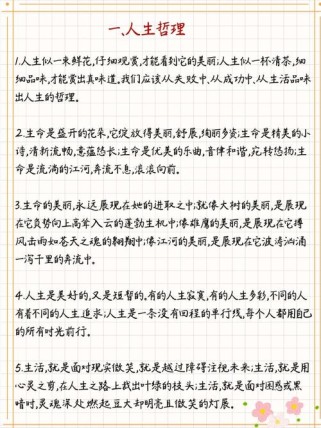 一.人生哲理
1.人生似一束鲜花,仔细观赏,才能看到它的美丽;人生似一杯清茶,细
细品味,才能赏出真味道。我们应该从失败中、从成功中、从生活品味
出人生的哲理。
2.生命是盛开的花朵,它绽放得美丽,舒展,绚丽多资;生命是精美的小
诗,清新流畅,意蕴悠长;生命是优美的乐曲,音律和谐,宛转悠扬;生
命是流淌的江河,奔流不息,滚滚向前。
3.生命的美丽,永远展现在她的进取之中;就像大树的美丽,是展现
在它负势向上高耸入云的蓬勃生机中;像雄鹰的美丽,是展现在它搏
风击雨如苍天之魂的翱翔中;像江河的美丽,是展现在它波涛汹涌
一泻千里的奔流中。
4.人生是美好的,又是短暂的。有的人生寂寞,有的人生多彩,不同的人
有着不同的人生追求;人生是一条没有回程的单行线,每个人都用自己
的所有时光前行。
5.生活,就是面对现实微笑,就是越过障碍注视未来;生活,就是用
心灵之剪,在人生之路上裁出叶绿的枝头;生活,就是面对困惑或黑
暗时,灵魂深处燃起豆大却明亮且微笑的灯展。